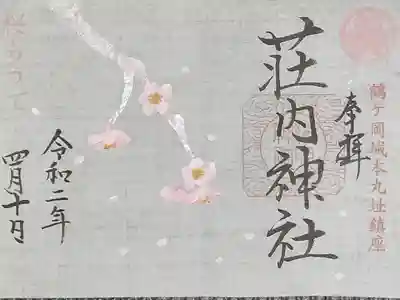 鶴ケ岡城本丸址鎮座
奉拝
荘内神社
令和二年
四月十日